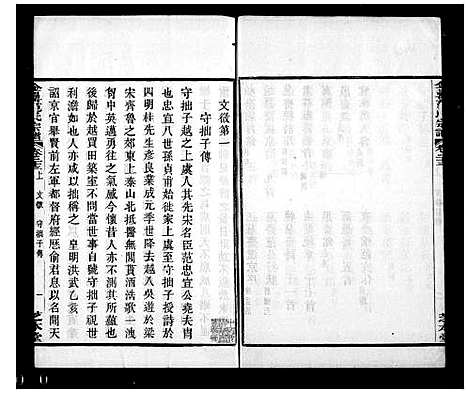 文徵第一
守拙子傳
守拙子越之上虞人其先宋名臣范忠宣公堯夫肖
也忠宣八世孫貞甫始徙家上虞至守拙子授詩於
四明桂先生彥良業成元季世降去越入吳遊於梁
宋齊魯之郊東上泰山北抵醫無閭貰酒浩歌一洩
胷中英邁勇往之氣感今懷昔人亦不測其所蘊也
後歸於越買田築室不問當世事自號守拙子視世
利澹如也人亦咸以拙稱之　皇明洪武乙亥
詔京官舉賢前左軍都督府經歷俞君息以名聞天
宗譜　卷之三上　文徵　守拙子傳　一